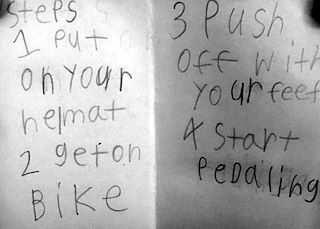 Steps
1 put
on your
helmat
2 get on
Bike
3 Push
off with
your feet
4 start
Pedaling